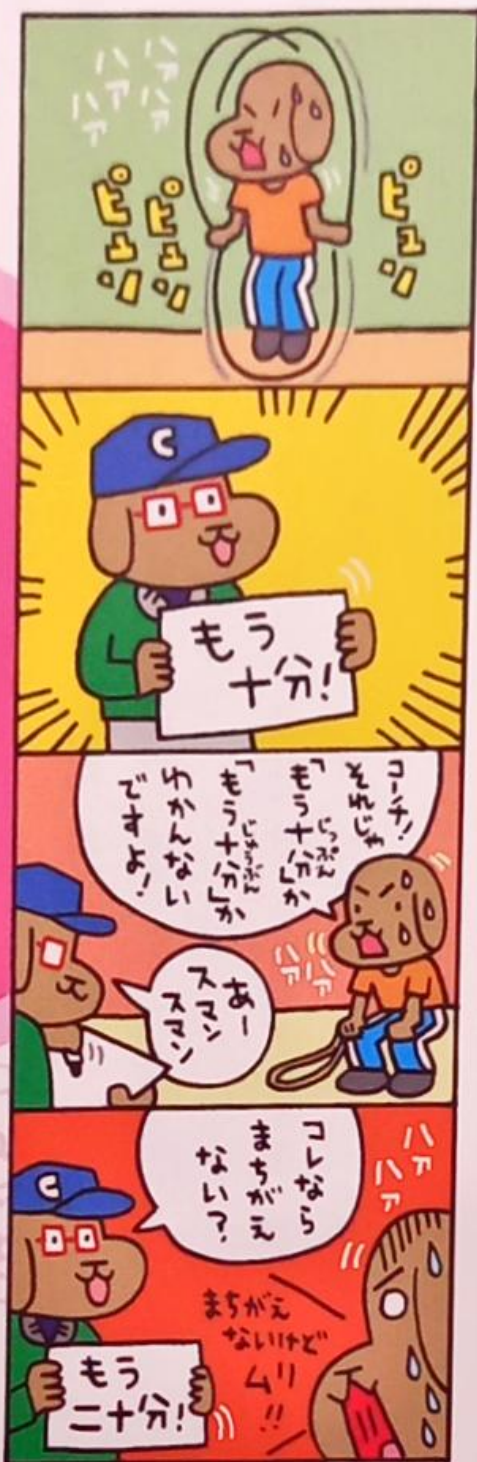 ハァ
ハァ
ハァ
ハァ
ピュン
ピュン
ピュン
C
もう
十分!
コーチ!
それじゃ
「もう十分」か
じっぷん
「もう十分」か
じゅうぶん
わかんない
ですよ!
ハァ
ハァ
あー
スマン
スマン
C
コレなら
まちがえ
ない?
ハァ
ハァ
まちがえ
ないけど
ムリ
!!
もう
二十分!